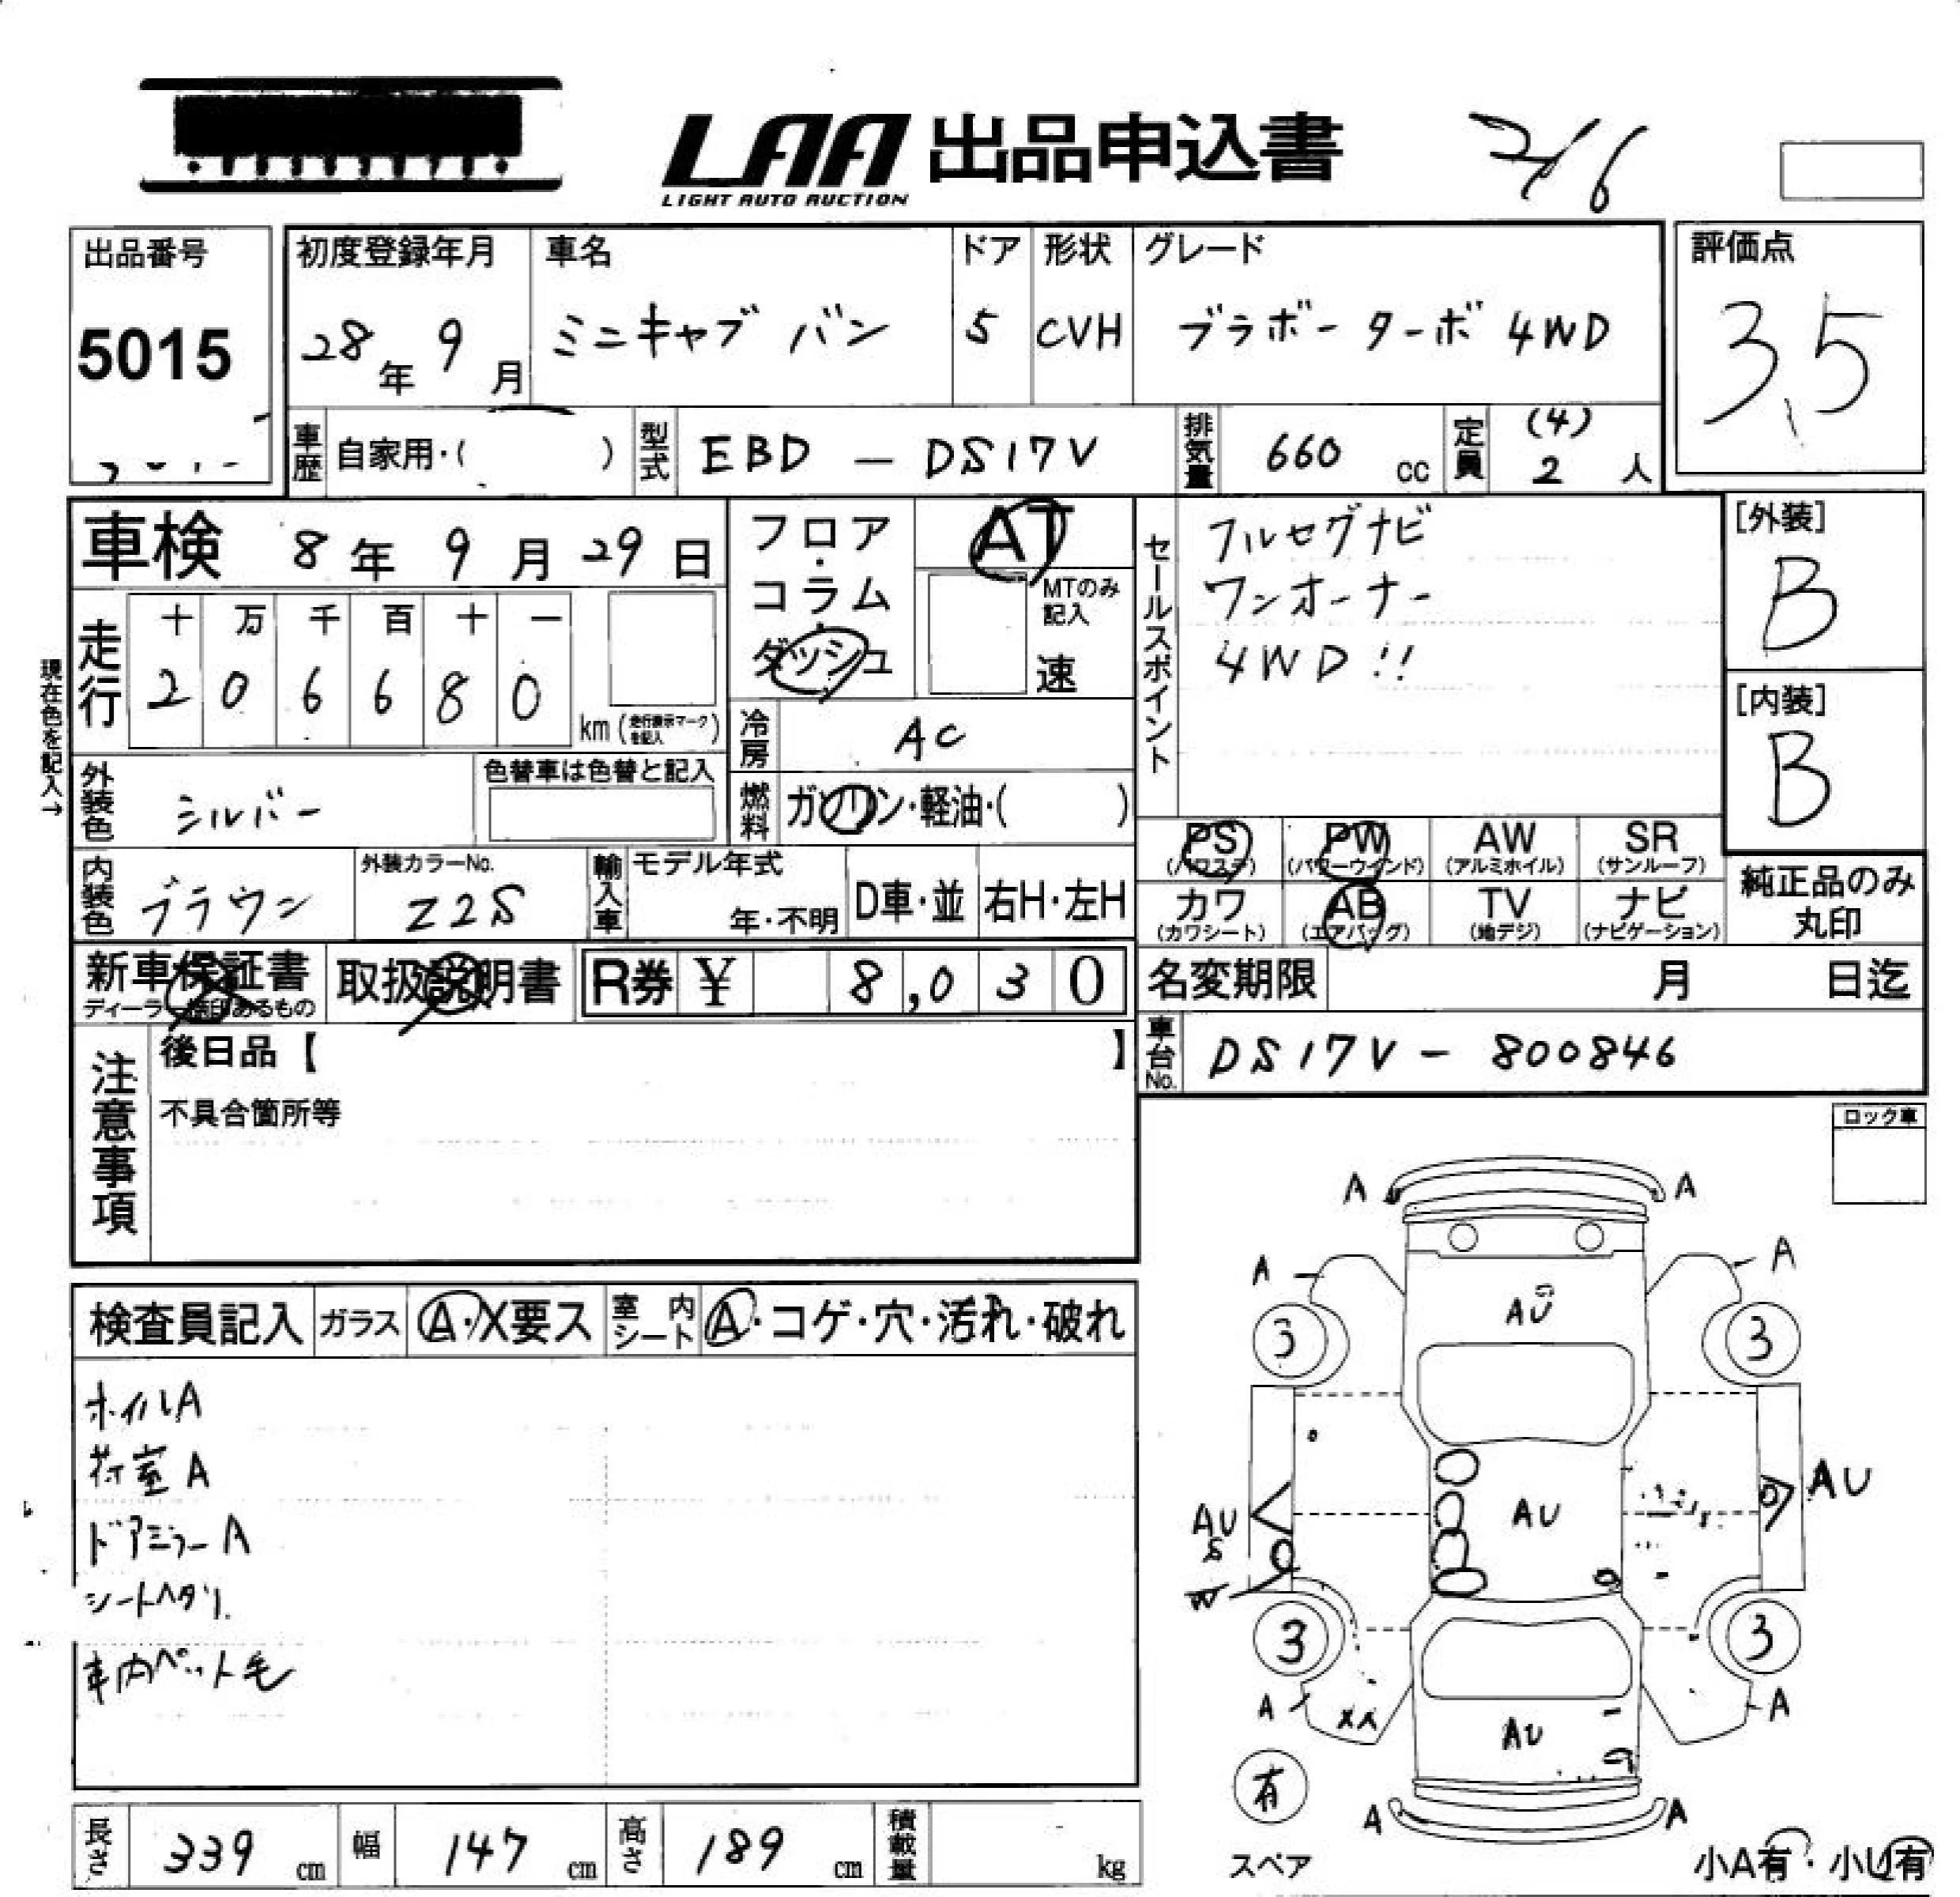 LAA 出品申込書
LIGHT AUTO AUCTION
出品番号
5015
初度登録年月
28年 9月
車名
ミニキャブ バン
ドア
5
形状
CVH
グレード
ブラボー ターボ 4WD
評価点
3.5
車歴 自家用・( )
型式 EBD - DS17V
排気量 660 cc
定員 (4) 2 人
車検 8年 9月 29日
フロア・コラム・ダッシュ
AT
MTのみ記入
速
走行
十 万 千 百 十 一
2 0 6 6 8 0
km (走行表示マークを記入)
現在色を記入→
冷房 AC
外装色 シルバー
色替車は色替と記入
燃料 ガソリン・軽油・( )
内装色 ブラウン
外装カラーNo.
Z2S
輸入車
モデル年式
年・不明
D車・並
右H・左H
セールスポイント
フルセグナビ
ワンオーナー
4WD!!
[外装]
B
[内装]
B
PS AB PW AW SR
(パワステ) (パワーウインド) (アルミホイル) (サンルーフ)
カワ AB TV ナビ
(カワシート) (エアバッグ) (地デジ) (ナビゲーション)
純正品のみ
丸印
新車保証書
ディーラー捺印あるもの
取扱説明書
R券 ¥ 8,030
名変期限 月 日迄
車台No. DS17V - 800846
注意事項
後日品【 】
不具合箇所等
ロック車
検査員記入
ガラス A・X要ス
室内シート A・コゲ・穴・汚れ・破れ
ホイルA
荷室A
ドアミラーA
シートヘタリ
車内ペット毛
A A
A A
AU
3 3
AU AU AU
S
W
3 3
A XX A
AU
有
スペア
A A
小A有・小U有
長さ 339 cm
幅 147 cm
高さ 189 cm
積載量 kg